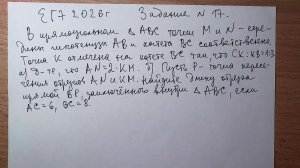 ЕГЭ 2026г. Задание N 17.
В прямоугольном △ ABC точки M и N - сере-
дины гипотенузы AB и катета BC соответственно.
Точка K отмечена на катете BC так, что CK:KB=1:3
а) Д-те, что AN=2·KM. б) Пусть P - точка пересе-
чения отрезков AN и KM. Найдите длину отрезка
прямой BP, заключённого внутри △ ABC, если
AC=6, BC=8.